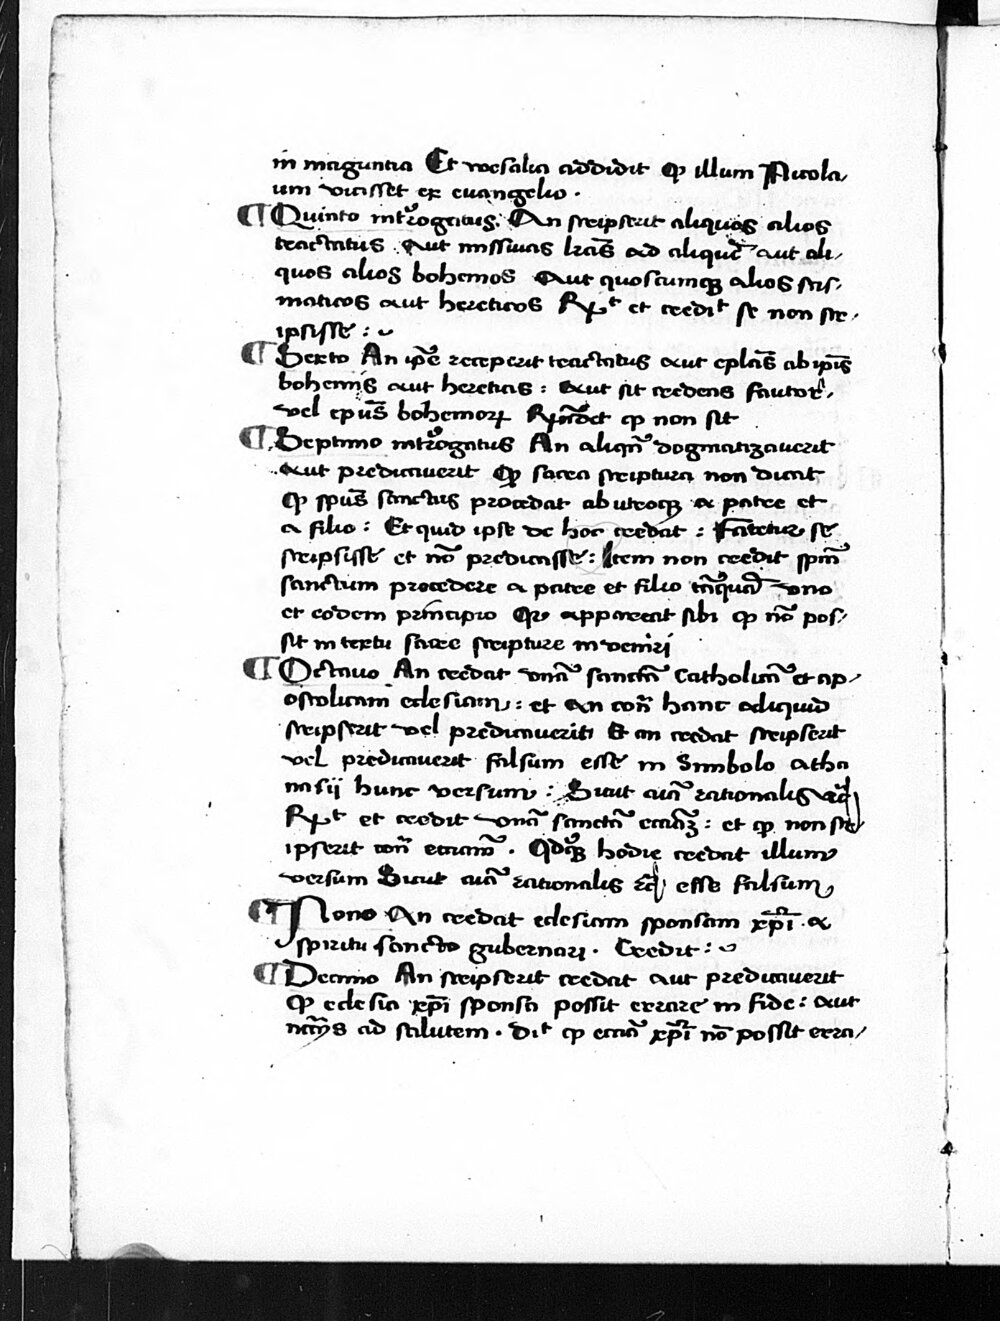 in maguntia Et wesalia addidit ꝙ illum Nicola/
um vicisset ex euangelio .
¶ Quinto int̾rogatus. An scripserit aliquos alios
tractatus . Aut missiuas lr̃as ad aliquẽ aut ali/
quos alios bohemos Aut quoscumqꝫ alios scis/
maticos aut hereticos Rñt et credit se non scr/
ipsisse :
¶ Sexto An ip̃e receperit tractatus aut epl̃as ab ip̃is
bohemis aut hereticis : Aut sit credens fautor /
vel ep̃us bohemorꝝ Rñdet ꝙ non sit
¶ Septimo int̾rogatus An aliqñ dogmatizauerit
Aut predicauerit Qꝙ sacra scriptura non dicat
Qꝙ sp̃us sanctus procedat ab utroqꝫ a patre et
a filio : Et quid ipse de hoc credat : Fatetur se
scripsisse et nõ predicasse : Item non credit sp̃m
sanctum procedere a patre et filio tñquã vno
et eodem principio Qꝛ appareat sibi ꝙ nõ pos/
sit in textu sacre scripture inueniri
¶ Octauo An credat vnã sanctã Catholicã et ap/
ostolicam eclesiam : et an cõtr̃ hanc aliquid
scripserit vel predicauerit Et an credat scripserit
vel predicauerit falsum esse in Simbolo atha
nasii hunc versum : Sicut aĩa rationalis ꝛc̃
Rñt et credit vnã sanctã eccĩaꝫ : et ꝙ non scr/
ipserit cõtr̃ eccĩam . Qdqꝫ hodie credat illum
versum Sicut aĩa rationalis ꝛc̃ esse falsum
¶ Nono An credat eclesiam sponsam xp̃i . a
spiritu sancto gubernari . Credit :
¶ Decimo An scripserit credat aut predicauerit
Qꝙ eclesia xp̃i sponsa possit errare in fide : aut
nccr̃ijs ad salutem . Dit ꝙ eccĩa xp̃i nõ possit erra/